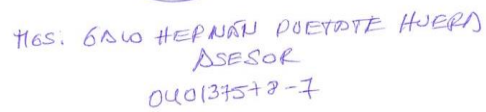 MGS. GALO HERNÁN PUETATE HUERA
ASESOR
040137578-7